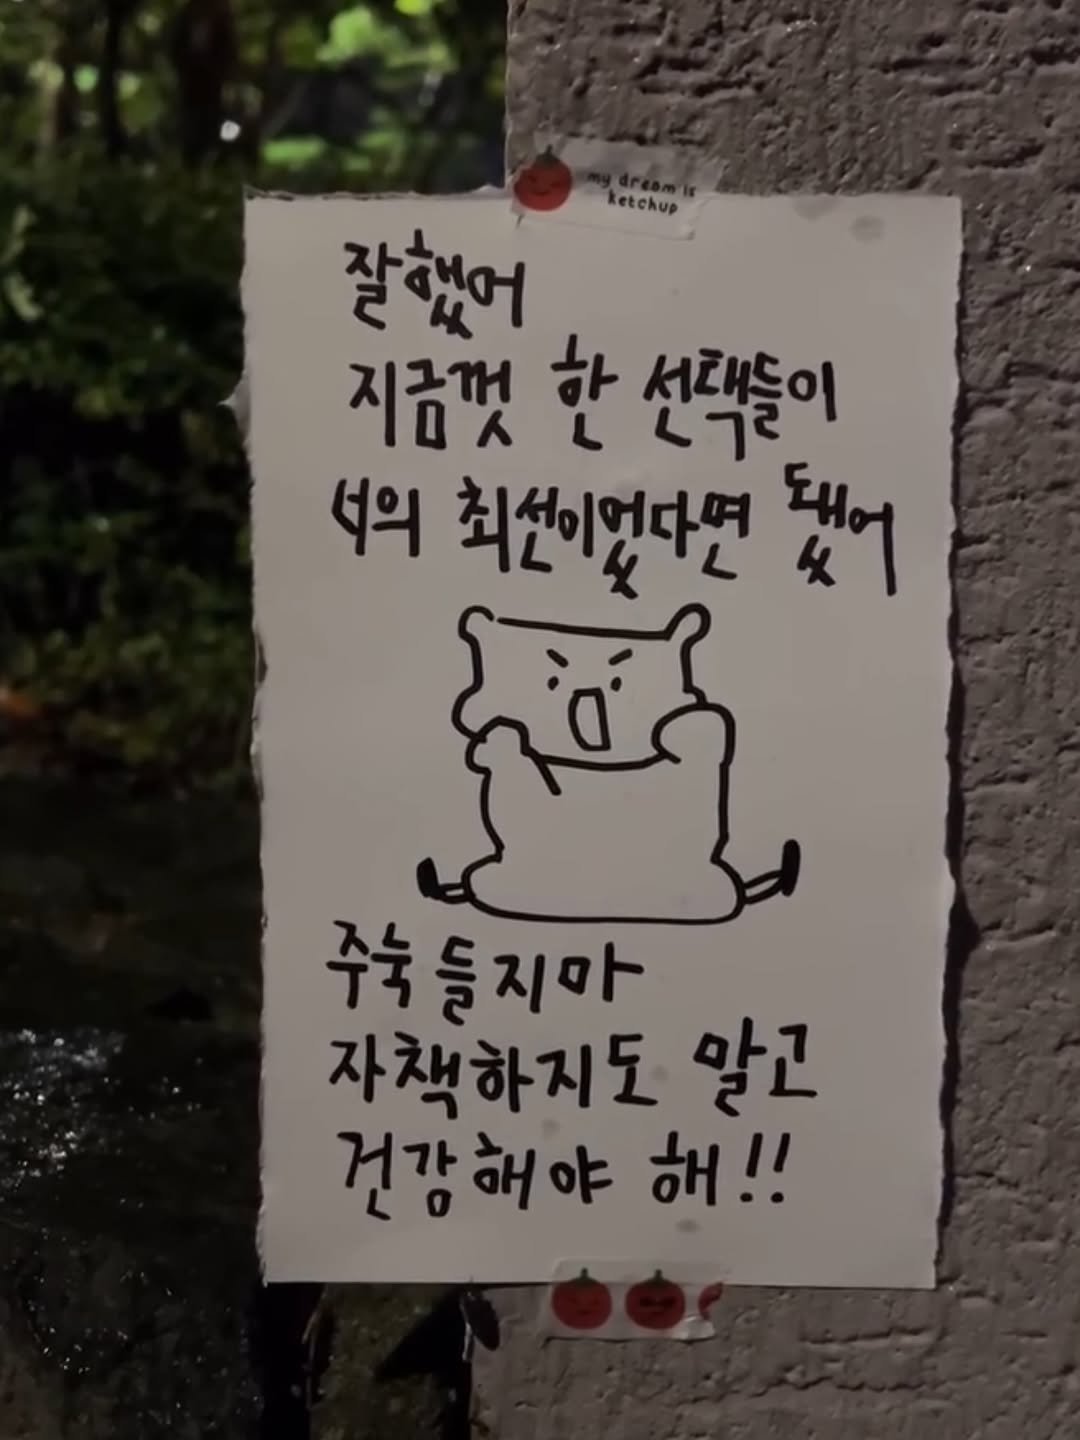 my dream is
ketchup
잘했어
지금껏 한 선택들이
너의 최선이었다면 됐어
주눅들지마
자책하지도 말고
건강해야 해!!